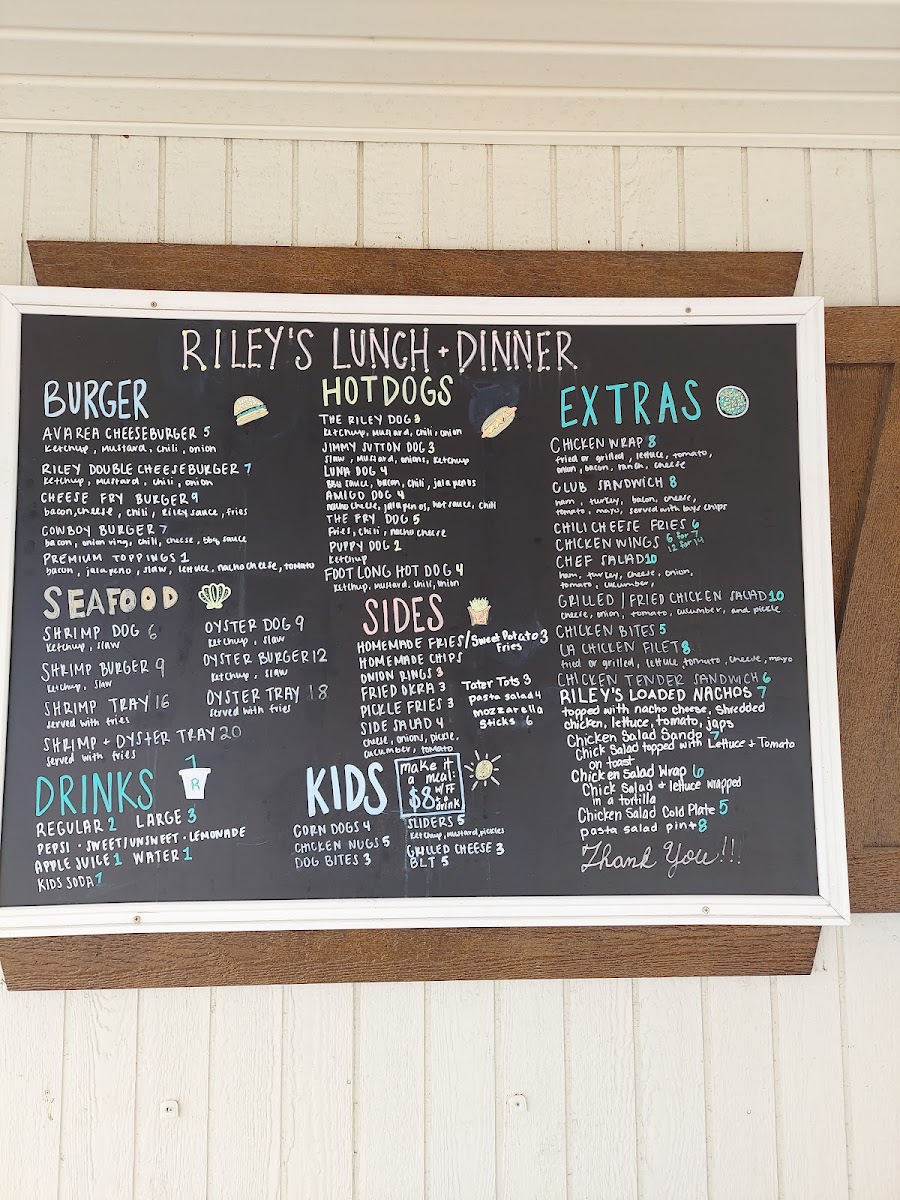 RILEY'S LUNCH + DINNER
BURGER
AVAREA CHEESEBURGER 5
ketchup, mustard, chili, onion
RILEY DOUBLE CHEESEBURGER 7
ketchup, mustard, chili, onion
CHEESE FRY BURGER 9
bacon, cheese, chili, Riley sauce, fries
COWBOY BURGER 7
bacon, onion ring, chili, cheese, bbq sauce
PREMIUM TOPPINGS 1
bacon, jalapeno, slaw, lettuce, nacho cheese, tomato
SEAFOOD
SHRIMP DOG 6
ketchup, slaw
SHRIMP BURGER 9
ketchup, slaw
SHRIMP TRAY 16
served with fries
SHRIMP + OYSTER TRAY 20
served with fries
OYSTER DOG 9
ketchup, slaw
OYSTER BURGER 12
ketchup, slaw
OYSTER TRAY 18
served with fries
DRINKS
R
REGULAR 2 LARGE 3
PEPSI · SWEET/UNSWEET · LEMONADE
APPLE JUICE 1 WATER 1
KIDS SODA 1
HOTDOGS
THE RILEY DOG 3
ketchup, mustard, chili, onion
JIMMY SUTTON DOG 3
slaw, mustard, onions, ketchup
LUNA DOG 4
BBQ sauce, bacon, chili, jalapenos
AMIGO DOG 4
nacho cheese, jalapenos, hot sauce, chili
THE FRY DOG 5
Fries, chili, nacho cheese
PUPPY DOG 2
ketchup
FOOT LONG HOT DOG 4
ketchup, mustard, chili, onion
SIDES
HOMEMADE FRIES/Sweet Potato 3
Fries
HOMEMADE CHIPS
ONION RINGS 3
FRIED OKRA 3
PICKLE FRIES 3
SIDE SALAD 4
cheese, onions, pickle,
cucumber, tomato
Tater Tots 3
pasta salad 4
mozzarella
sticks 6
KIDS
make it
a meal:
$8 w/FF
+ a
drink
CORN DOGS 4
CHICKEN NUGS 5
DOG BITES 3
SLIDERS 5
ketchup, mustard, pickles
GRILLED CHEESE 3
BLT 5
EXTRAS
CHICKEN WRAP 8
fried or grilled, lettuce, tomato,
onion, bacon, ranch, cheese
CLUB SANDWICH 8
ham, turkey, bacon, cheese,
tomato, mayo, served with lays chips
CHILI CHEESE FRIES 6
CHICKEN WINGS 6 for 7
12 for 14
CHEF SALAD 10
ham, turkey, cheese, onion,
tomato, cucumber,
GRILLED / FRIED CHICKEN SALAD 10
cheese, onion, tomato, cucumber, and pickle
CHICKEN BITES 5
LA CHICKEN FILET 8
fried or grilled, lettuce, tomato, cheese, mayo
CHICKEN TENDER SANDWICH 6
RILEY'S LOADED NACHOS 7
topped with nacho cheese, shredded
chicken, lettuce, tomato, japs
Chicken Salad Sando 7
Chick Salad topped with Lettuce + Tomato
on toast
Chicken Salad Wrap 6
Chick Salad + lettuce wrapped
in a tortilla
Chicken Salad Cold Plate 5
pasta salad pint 8
Thank You!!!